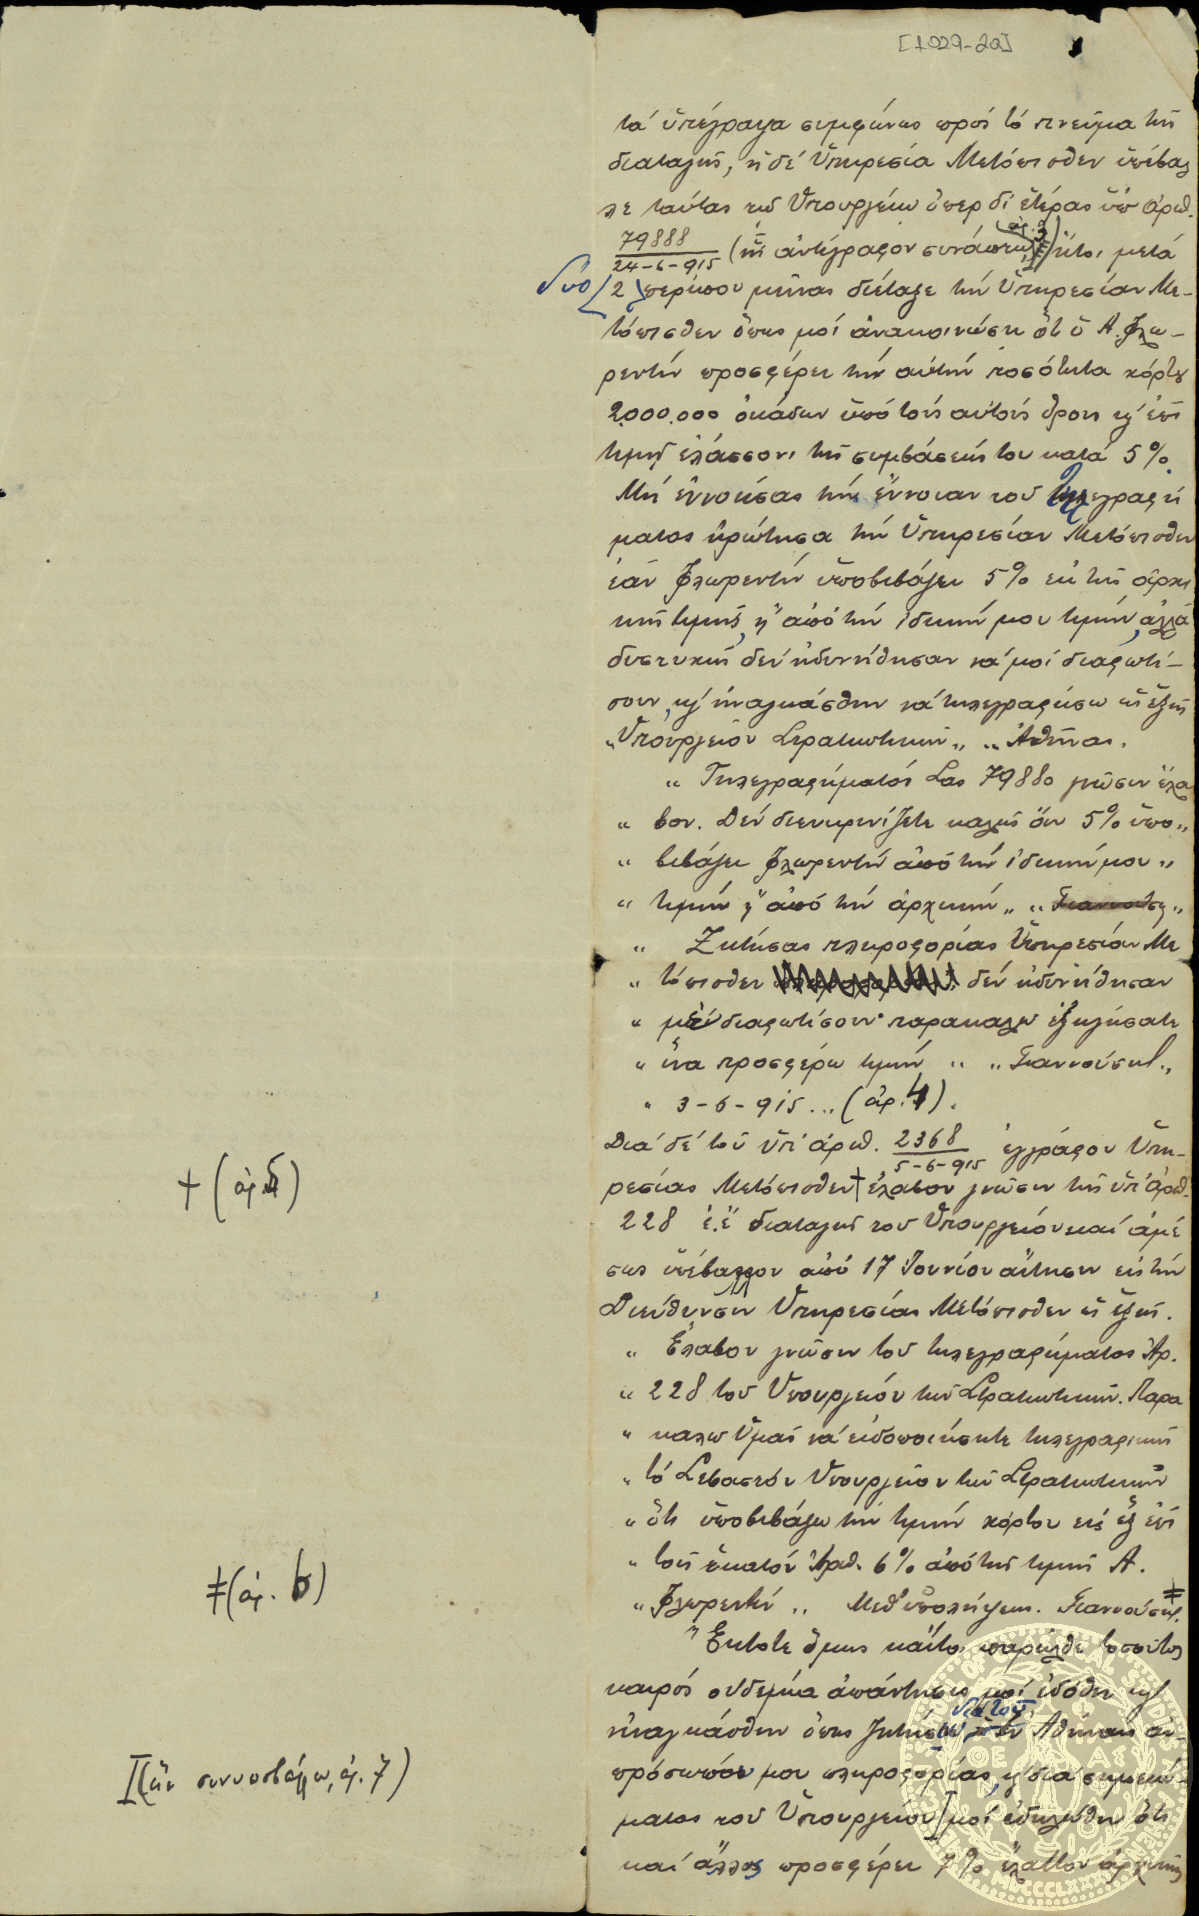 [1029-20]
τά ὑπέγραψα συμφώνως πρός τό πνεῦμα τῆς
διαταγῆς, ἡ δέ Ὑπηρεσία Μετόπισθεν ὑπέβαλ
λε ταύτας τῷ Ὑπουργείῳ ὅπερ δι' ἑτέρας ὑπ' ἀριθ.
79888
24-6-915 (ἧς ἀντίγραφον συνάπτω) (ἀρ. 3) ἤτοι μετά
δύο 2 περίπου μῆνας διέταξε τήν Ὑπηρεσίαν Με-
τόπισθεν ὅπως μοί ἀνακοινώσῃ ὅτι ὁ Α. Φλω-
ρεντίν προσφέρει τήν αὐτήν ποσότητα χόρτου
2.000.000 ὀκάδων ὑπό τούς αὐτούς ὅρους κ' ἐπί
τιμῇ ἐλάσσονι τῆς συμβάσεώς του κατά 5%.
Μή ἐννοήσας τήν ἔννοιαν τοῦ τηλεγραφή
ματος ἠρώτησα τήν Ὑπηρεσίαν Μετόπισθεν
ἐάν Φλωρεντίν ὑποβιβάζει 5% ἐκ τῆς ἀρχι
κῆς τιμῆς, ἤ ἀπό τήν ἰδικήν μου τιμήν, ἀλλά
δυστυχῶς δέν ἠδυνήθησαν νά μοί διαφωτί-
σουν, κ' ἠναγκάσθην νά τηλεγραφήσω ὡς ἑξῆς
"Ὑπουργεῖον Στρατιωτικῶν" "Ἀθήνας.
" Τηλεγραφήματός Σας 79880 γνῶσιν ἔλα
" βον. Δέν διευκρινίζετε καλῶς ἄν 5% ὑπο"
" βιβάζει Φλωρεντίν ἀπό τήν ἰδικήν μου "
" τιμήν ἤ ἀπό τήν ἀρχικήν " "
" Ζητήσας πληροφορίας Ὑπηρεσίαν Με
" τόπισθεν δέν ἠδυνήθησαν
" μέ διαφωτίσουν· παρακαλῶ ἐξηγήσατε
" ἵνα προσφέρω τιμήν " "Γιαννούσης"
" 3-6-915... (ἀρ. 4).
Διά δέ τοῦ ὑπ' ἀριθ. 2368
5-6-915 ἐγγράφου Ὑπη-
ρεσίας Μετόπισθεν + ἔλαβον γνῶσιν τῆς ὑπ' ἀριθ.
228 ἐ.ἔ. διαταγῆς τοῦ Ὑπουργείου καί ἀμέ
σως ὑπέβαλλον ἀπό 17 Ἰουνίου αἴτησιν εἰς τήν
Διεύθυνσιν Ὑπηρεσίας Μετόπισθεν ὡς ἑξῆς.
" Ἔλαβον γνῶσιν τοῦ τηλεγραφήματος Ἀρ.
" 228 τοῦ Ὑπουργείου τῶν Στρατιωτικῶν. Παρα
" καλῶ Ὑμᾶς νά εἰδοποιήσητε τηλεγραφικῶς
" τό Σεβαστόν Ὑπουργεῖον τῶν Στρατιωτικῶν
" ὅτι ὑποβιβάζω τήν τιμήν χόρτου εἰς ἕξ ἐπί
" τοῖς ἑκατόν Ἀριθ. 6% ἀπό τῆς τιμῆς Α.
" Φλωρεντίν " Μεθ' ὑπολήψεως. Γιαννούσης. ‡
" Ἔκτοτε ὅμως καίτοι παρῆλθε τοσοῦτος
καιρός οὐδεμία ἀπάντησις μοί ἐδόθη κ'
ἠναγκάσθην ὅπως ζητήσω διά τοῦ ἐν Ἀθήναις ἀν-
προσώπου μου πληροφορίας, κ' διά σημειώ-
ματος τοῦ Ὑπουργείου I μοί ἐδηλώθη ὅτι
καί ἄλλος προσφέρει 7% ἔλαττον ἀρχικῆς
+ (ἀρ. 5)
‡ (ἀρ. 6)
I (ὅπερ συνυποβάλλω, ἀρ. 7)